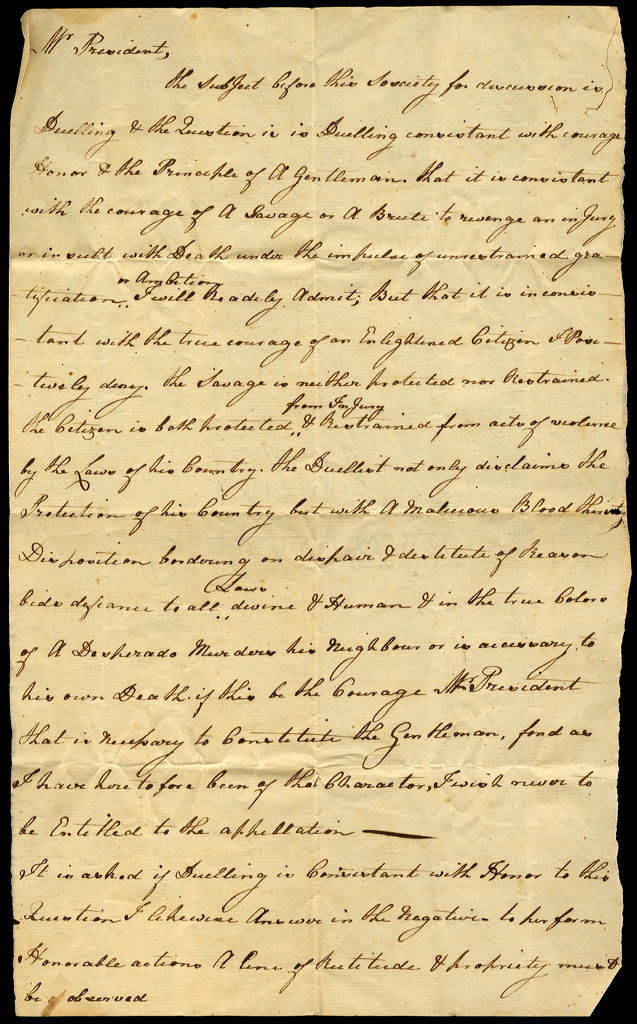 Mr President,
the subject before this Society for discussion is
Duelling & the Question is is Duelling consistant with courage
Honor & the Principle of A Gentleman. that it is consistant
with the courage of A Savage or A Brute to revenge an injury
or insult with Death under the impulse of unrestrained gra-
or Ambition
tification,, I will Readily Admit; But that it is inconsis-
-tant with the true courage of an Enlightened Citizen I Posi-
-tively deny. the Savage is neither protected nor Restrained.
from Injury
the Citizen is both protected,, & Restrained from acts of violence
by the Laws of his Country. the Duellist not only disclaims the
Protection of his Country but with A Malicious Blood thirsty
Disposition bordering on dispair & destitute of Reason
Laws
bids defiance to all,, divine & Human & in the true Colors
of A Desperado Murders his Neighbour or is accessary to
his own Death. if this be the Courage Mr President
that is necessary to Constitute the Gentleman, fond as
I have heretofore been of the Character, I wish never to
be Entitled to the appellation —
It is asked if Duelling is Consistant with Honor to this
Question I likewise Answer in the Negative - to perform
Honorable actions A line of Rectitude & propriety must
be observed